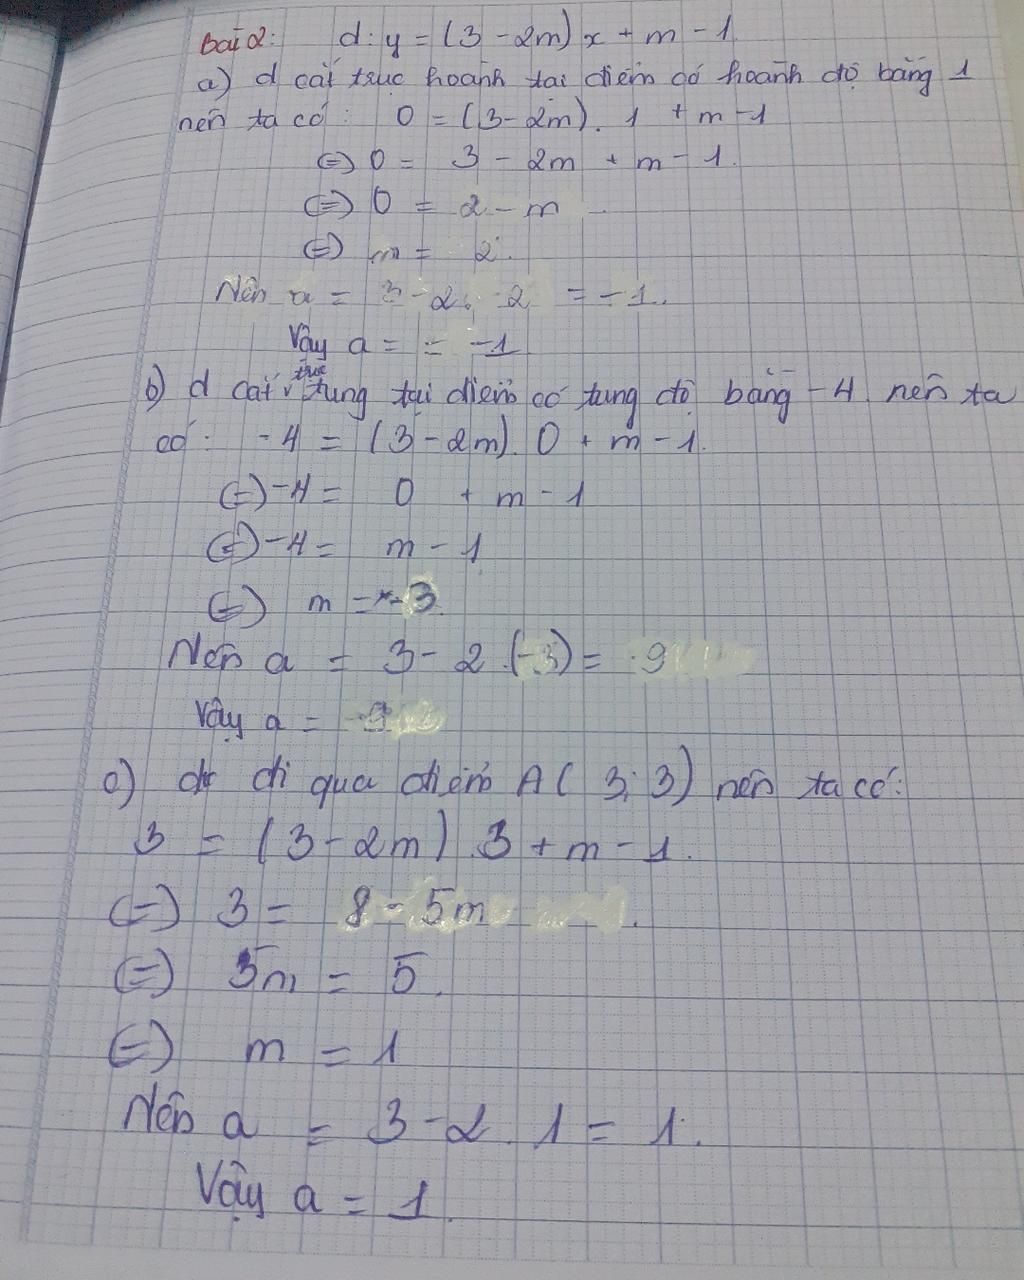 bài 2: d: y = (3 - 2m)x + m - 1
a) d cắt trục hoành tại điểm có hoành độ bằng 1
nên ta có: 0 = (3 - 2m). 1 + m - 1
(=) 0 = 3 - 2m + m - 1.
(=) 0 = 2 - m
(=) m = 2.
Nên a = 3 - 2. 2 = -1.
Vậy a = = -1
b) d cắt trục tung tại điểm có tung độ bằng -4 nên ta
có: -4 = (3 - 2m). 0 + m - 1.
(=) -4 = 0 + m - 1
(=) -4 = m - 1
(=) m = -3.
Nên a = 3 - 2.(-3) = 9
Vậy a = 9
c) d đi qua điểm A( 3; 3) nên ta có:
3 = (3 - 2m). 3 + m - 1.
(=) 3 = 8 - 5m
(=) 5m = 5.
(=) m = 1
Nên a = 3 - 2. 1 = 1.
Vậy a = 1.